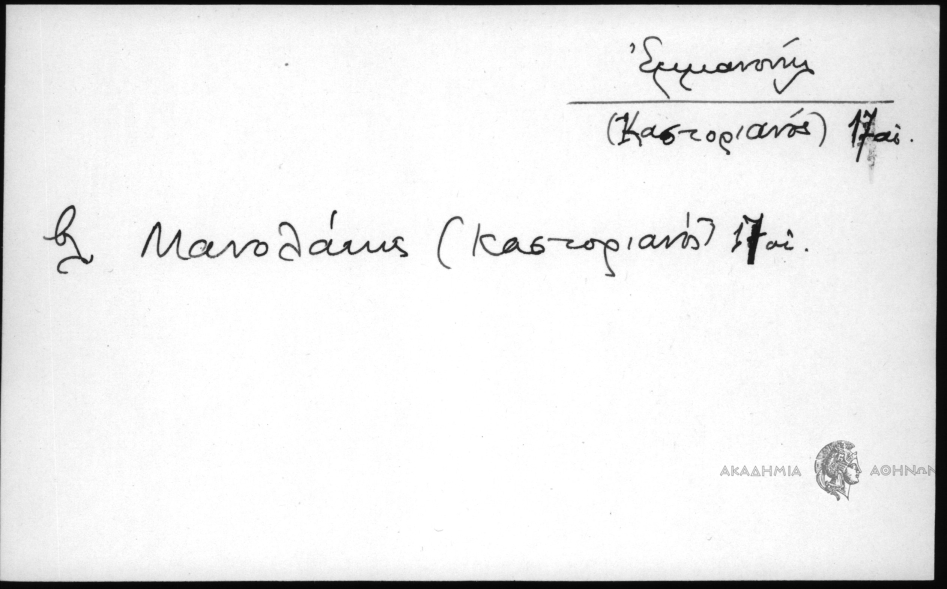 Ἐμμανουήλ
(Καστοριανός) 17 αἰ.
βλ Μανολάκης (Καστοριανός) 17 αἰ.
ΑΚΑΔΗΜΙΑ ΑΘΗΝΩΝ